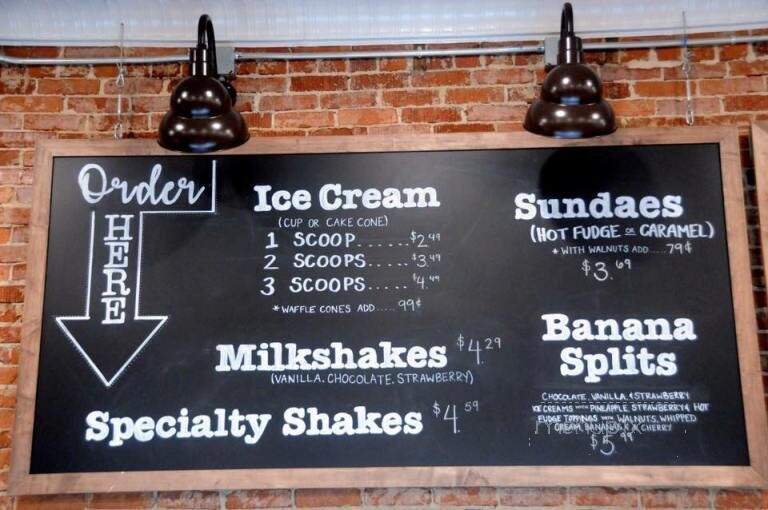 Order
HERE
Ice Cream
(CUP OR CAKE CONE)
1 SCOOP......$2.49
2 SCOOPS.....$3.49
3 SCOOPS.....$4.49
*WAFFLE CONES ADD.....99¢
Milkshakes $4.29
(VANILLA, CHOCOLATE, STRAWBERRY)
Specialty Shakes $4.59
Sundaes
(HOT FUDGE OR CARAMEL)
*WITH WALNUTS ADD....79¢
$3.69
Banana
Splits
CHOCOLATE, VANILLA, & STRAWBERRY
ICE CREAMS WITH PINEAPPLE, STRAWBERRY & HOT
FUDGE TOPPINGS WITH WALNUTS, WHIPPED
CREAM, BANANAS & A CHERRY
$5.99